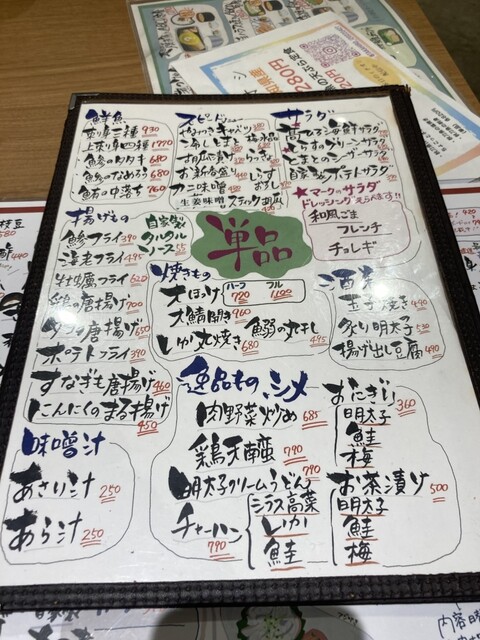 鮮魚
盛り身三種 930
上盛り身四種 1770
鯵のタタキ 680
鯵のなめろう 680
鮪の中落ち 760
スピードメニュー
やみつきキャベツ
お新香盛り
カニ味噌
生姜味噌 スティック胡瓜
サラダ
しらすのグリーンサラダ
とまとのシーザーサラダ
自家製ポテトサラダ
★マークのサラダ
ドレッシングえらべます!!
和風ごま
フレンチ
チョレギ
単品
揚げもの
自家製
タルタル
ソース 55
鯵フライ 390
海老フライ 495
牡蠣フライ 620
鶏の唐揚げ 700
タコの唐揚げ 650
ポテトフライ 390
すなぎも唐揚げ 460
にんにくのまる揚げ 450
焼きもの
大ほっけ ハーフ 720 フル 1,100
大鯖開き 960
いか丸焼き 680
鰯の丸干し 495
酒菜
玉子焼き 490
炙り明太子 530
揚げ出し豆腐 490
逸品もの、シメ
肉野菜炒め 685
鶏天南蛮 790
明太子クリームうどん 790
チャーハン 790
シラス高菜
いか
鮭
おにぎり 360
明太子
鮭
梅
お茶漬け 500
明太子
鮭
梅
味噌汁
あさり汁 250
あら汁 250